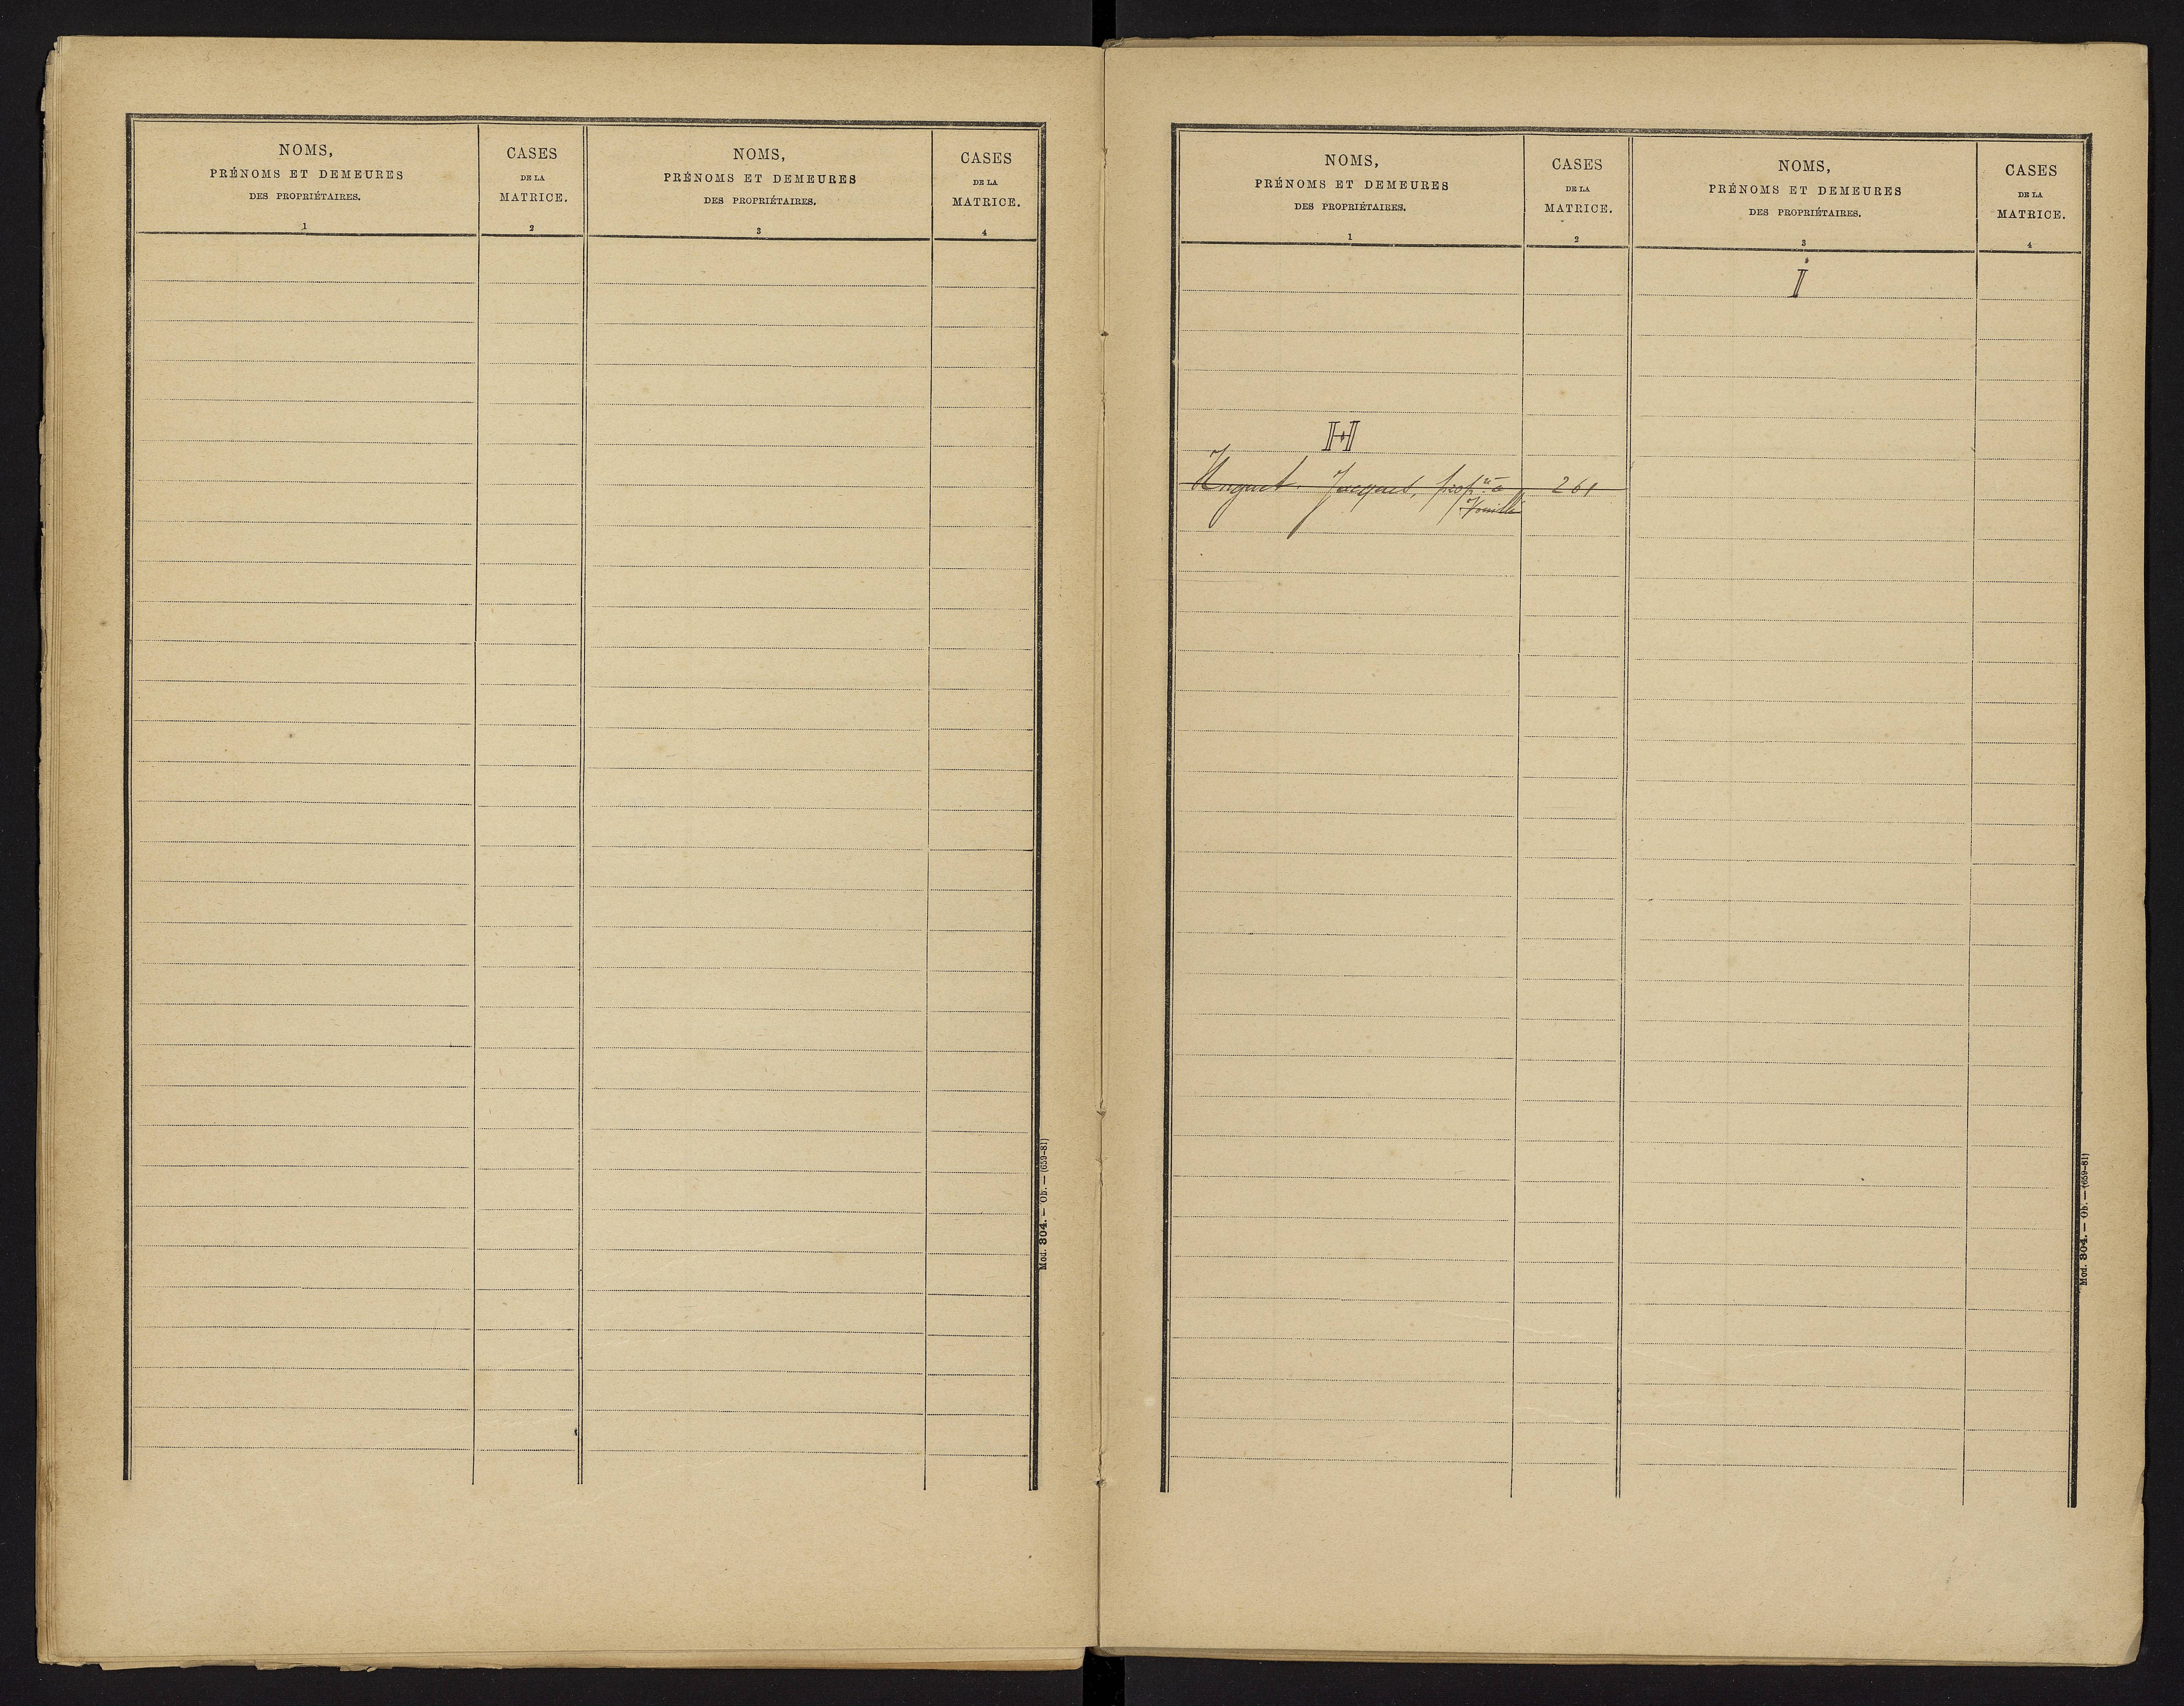 NOMS,
PRÉNOMS ET DEMEURES
DES PROPRIÉTAIRES.
1
CASES
DE LA
MATRICE.
2
NOMS,
PRÉNOMS ET DEMEURES
DES PROPRIÉTAIRES.
3
CASES
DE LA
MATRICE.
4
Mod. 304. — Ob. — (659-81)
NOMS,
PRÉNOMS ET DEMEURES
DES PROPRIÉTAIRES.
1
CASES
DE LA
MATRICE.
2
NOMS,
PRÉNOMS ET DEMEURES
DES PROPRIÉTAIRES.
3
CASES
DE LA
MATRICE.
4
H
Huguet Jacques, prop.re à 261
Vouillé
I
Mod. 304. — Ob. — (659-81)